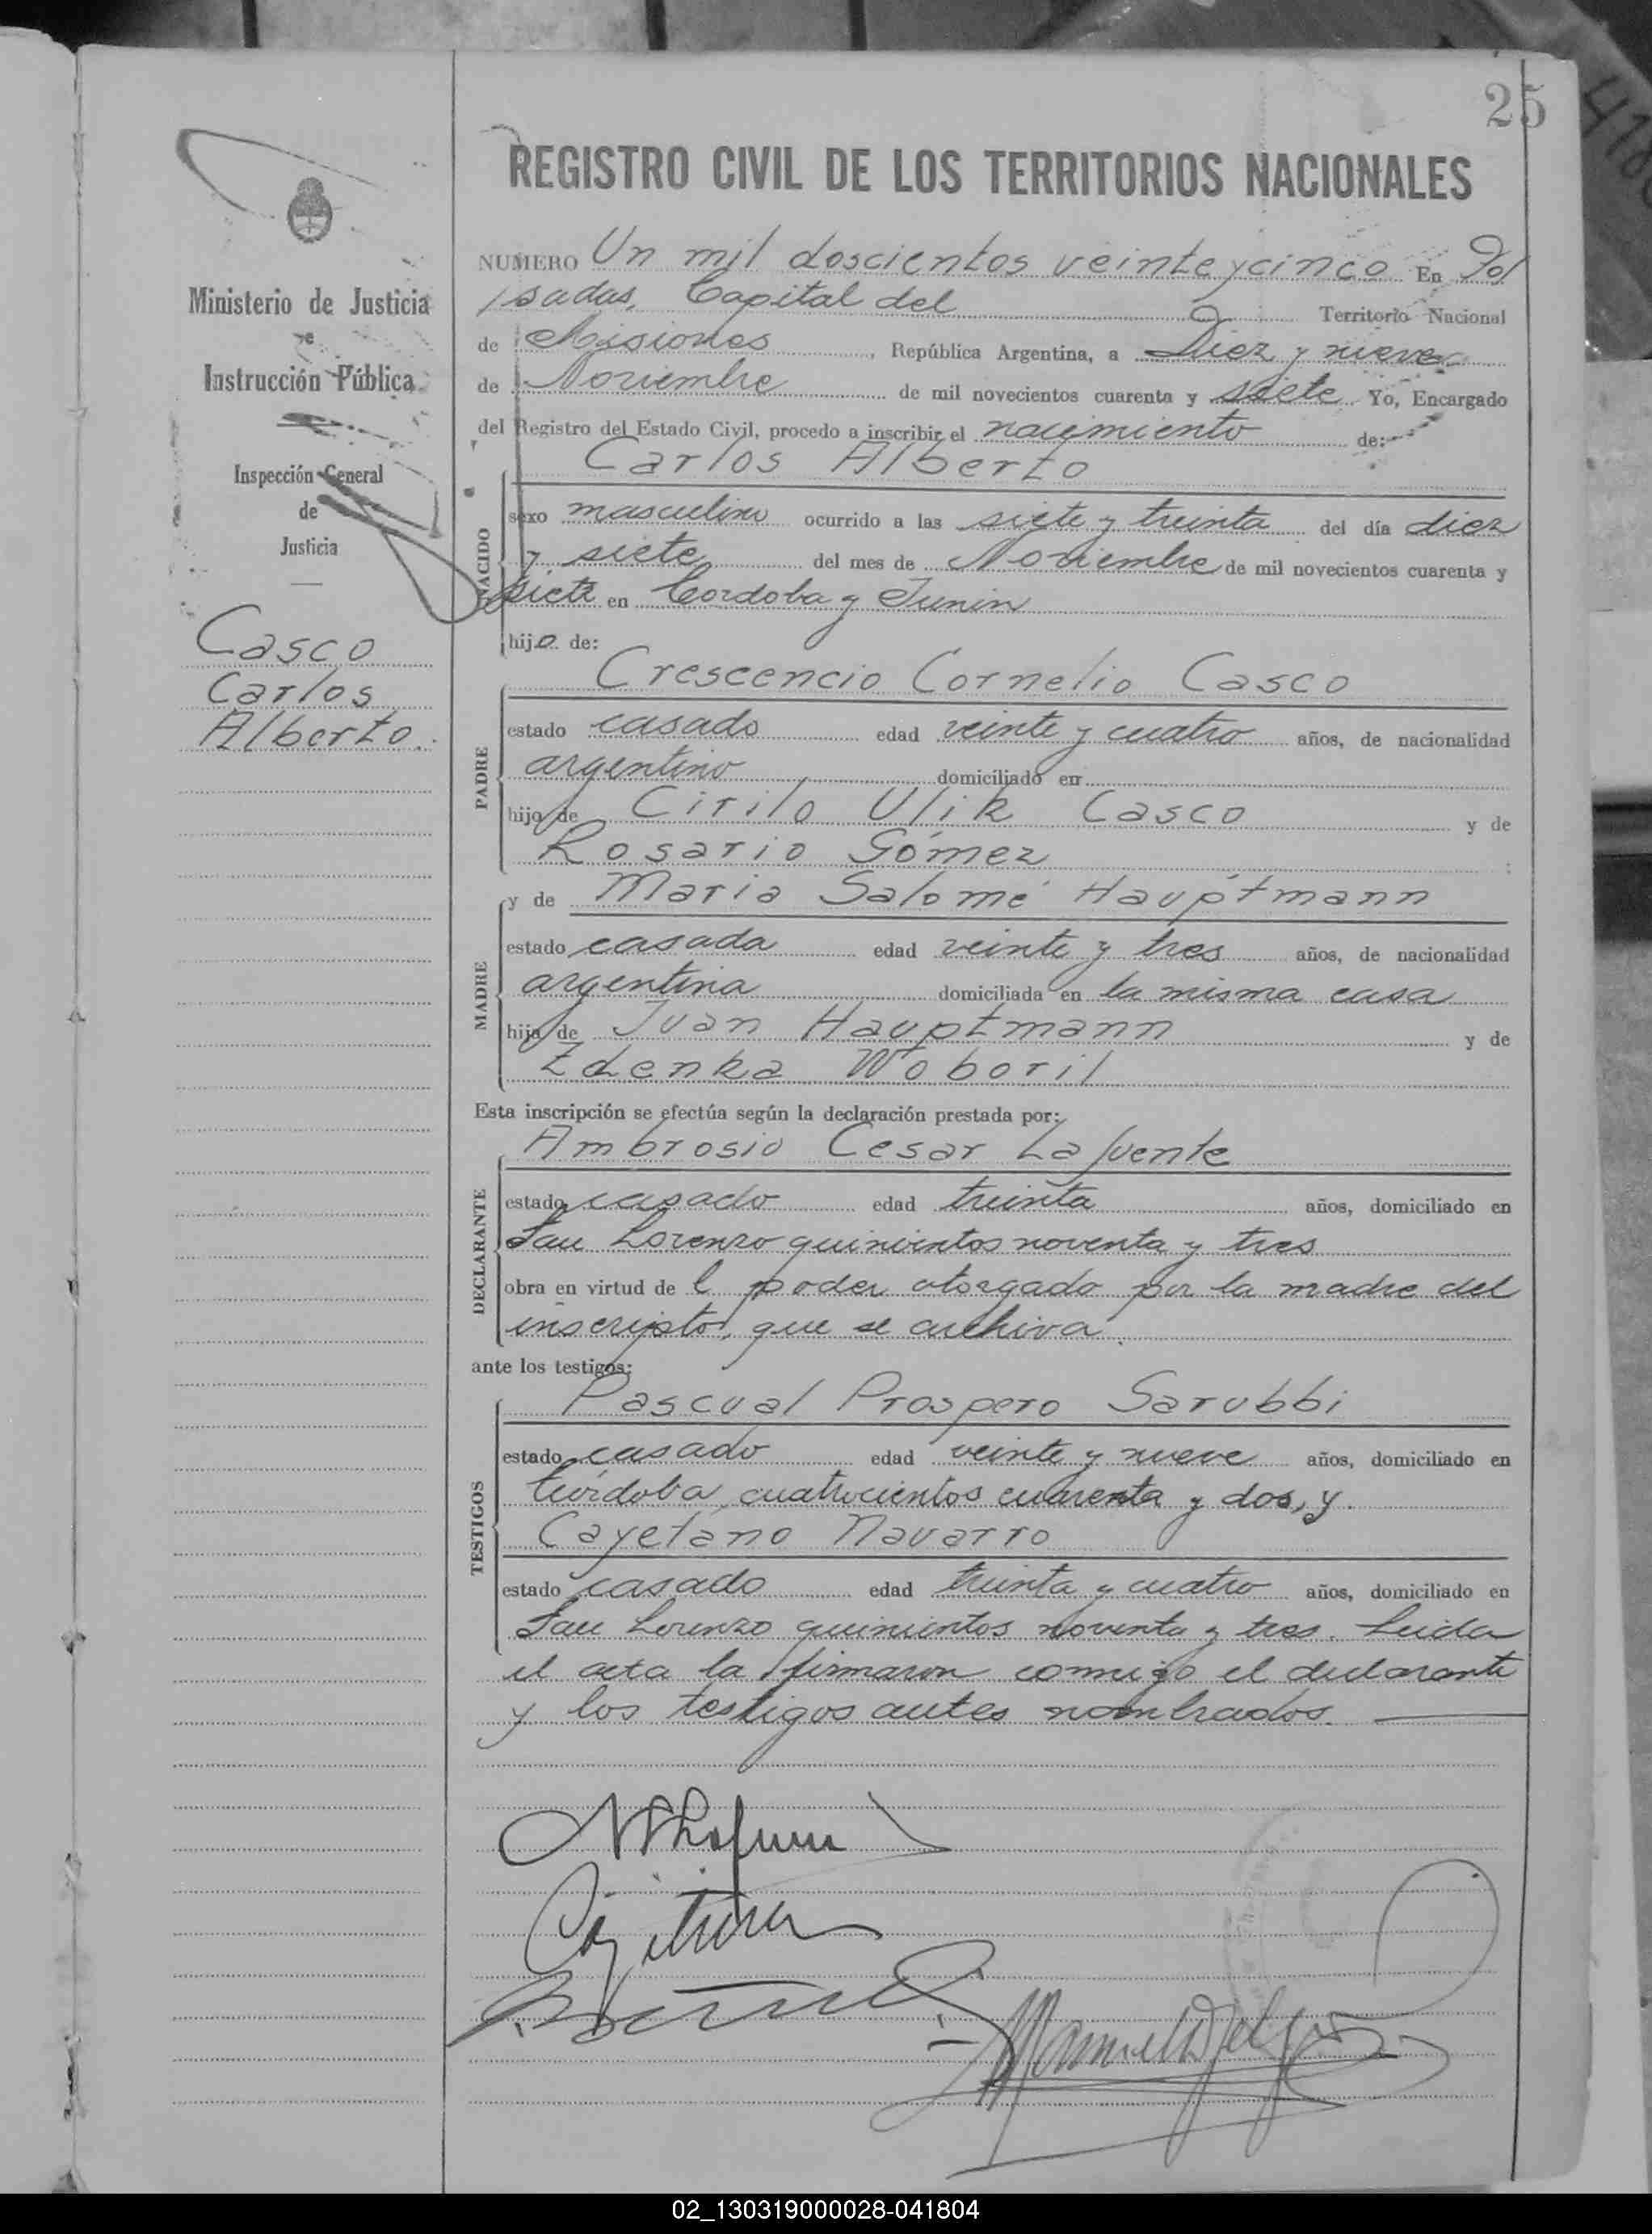 25
REGISTRO CIVIL DE LOS TERRITORIOS NACIONALES
Ministerio de Justicia
e
Instrucción Pública
Inspección General
de
Justicia
Casco
Carlos
Alberto.
NUMERO Un mil doscientos veinte y cinco En Po/
/sadas, Capital del Territorio Nacional
de Misiones, República Argentina, a Diez y nueve
de Noviembre de mil novecientos cuarenta y siete Yo, Encargado
del Registro del Estado Civil, procedo a inscribir el nacimiento de:
Carlos Alberto
NACIDO
sexo masculino ocurrido a las siete y treinta del día diez
y siete del mes de Noviembre de mil novecientos cuarenta y
siete en Cordoba y Junin
hijo de:
Crescencio Cornelio Casco
PADRE
estado casado edad veinte y cuatro años, de nacionalidad
argentino domiciliado en
hijo de Cirilo Ulik Casco y de
Rosario Gómez
MADRE
y de Maria Salomé Hauptmann
estado casada edad veinte y tres años, de nacionalidad
argentina domiciliada en la misma casa
hija de Juan Hauptmann y de
Zdenka Woboril
Esta inscripción se efectúa según la declaración prestada por:
Ambrosio Cesar Lafuente
DECLARANTE
estado casado edad treinta años, domiciliado en
San Lorenzo quinientos noventa y tres
obra en virtud de l poder otorgado por la madre del
inscripto, que se archiva.
ante los testigos:
Pascual Prospero Sarubbi
TESTIGOS
estado casado edad veinte y nueve años, domiciliado en
Córdoba cuatrocientos cuarenta y dos, y
Cayetano Navarro
estado casado edad treinta y cuatro años, domiciliado en
San Lorenzo quinientos noventa y tres. Leida
el acta la firmaron conmigo el declarante
y los testigos antes nombrados.
02_130319000028-041804